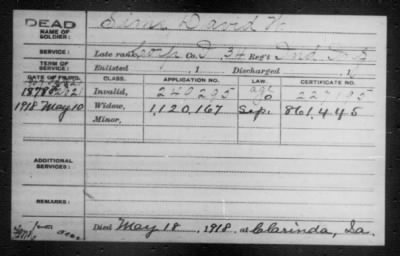 DEAD
NAME OF SOLDIER:
David
SERVICE:
Late rank, Co. D, 34 Reg't Ind.
TERM OF SERVICE:
Enlisted , 1 Discharged , 1
DATE OF FILING. CLASS. APPLICATION NO. LAW. CERTIFICATE NO.
1878 Invalid, 240295
1918 May 10 Widow, 1,120,167 Sep. 861,445
Minor,
ADDITIONAL SERVICES:
REMARKS:
Died May 18, 1918, at Clarinda, Ia.